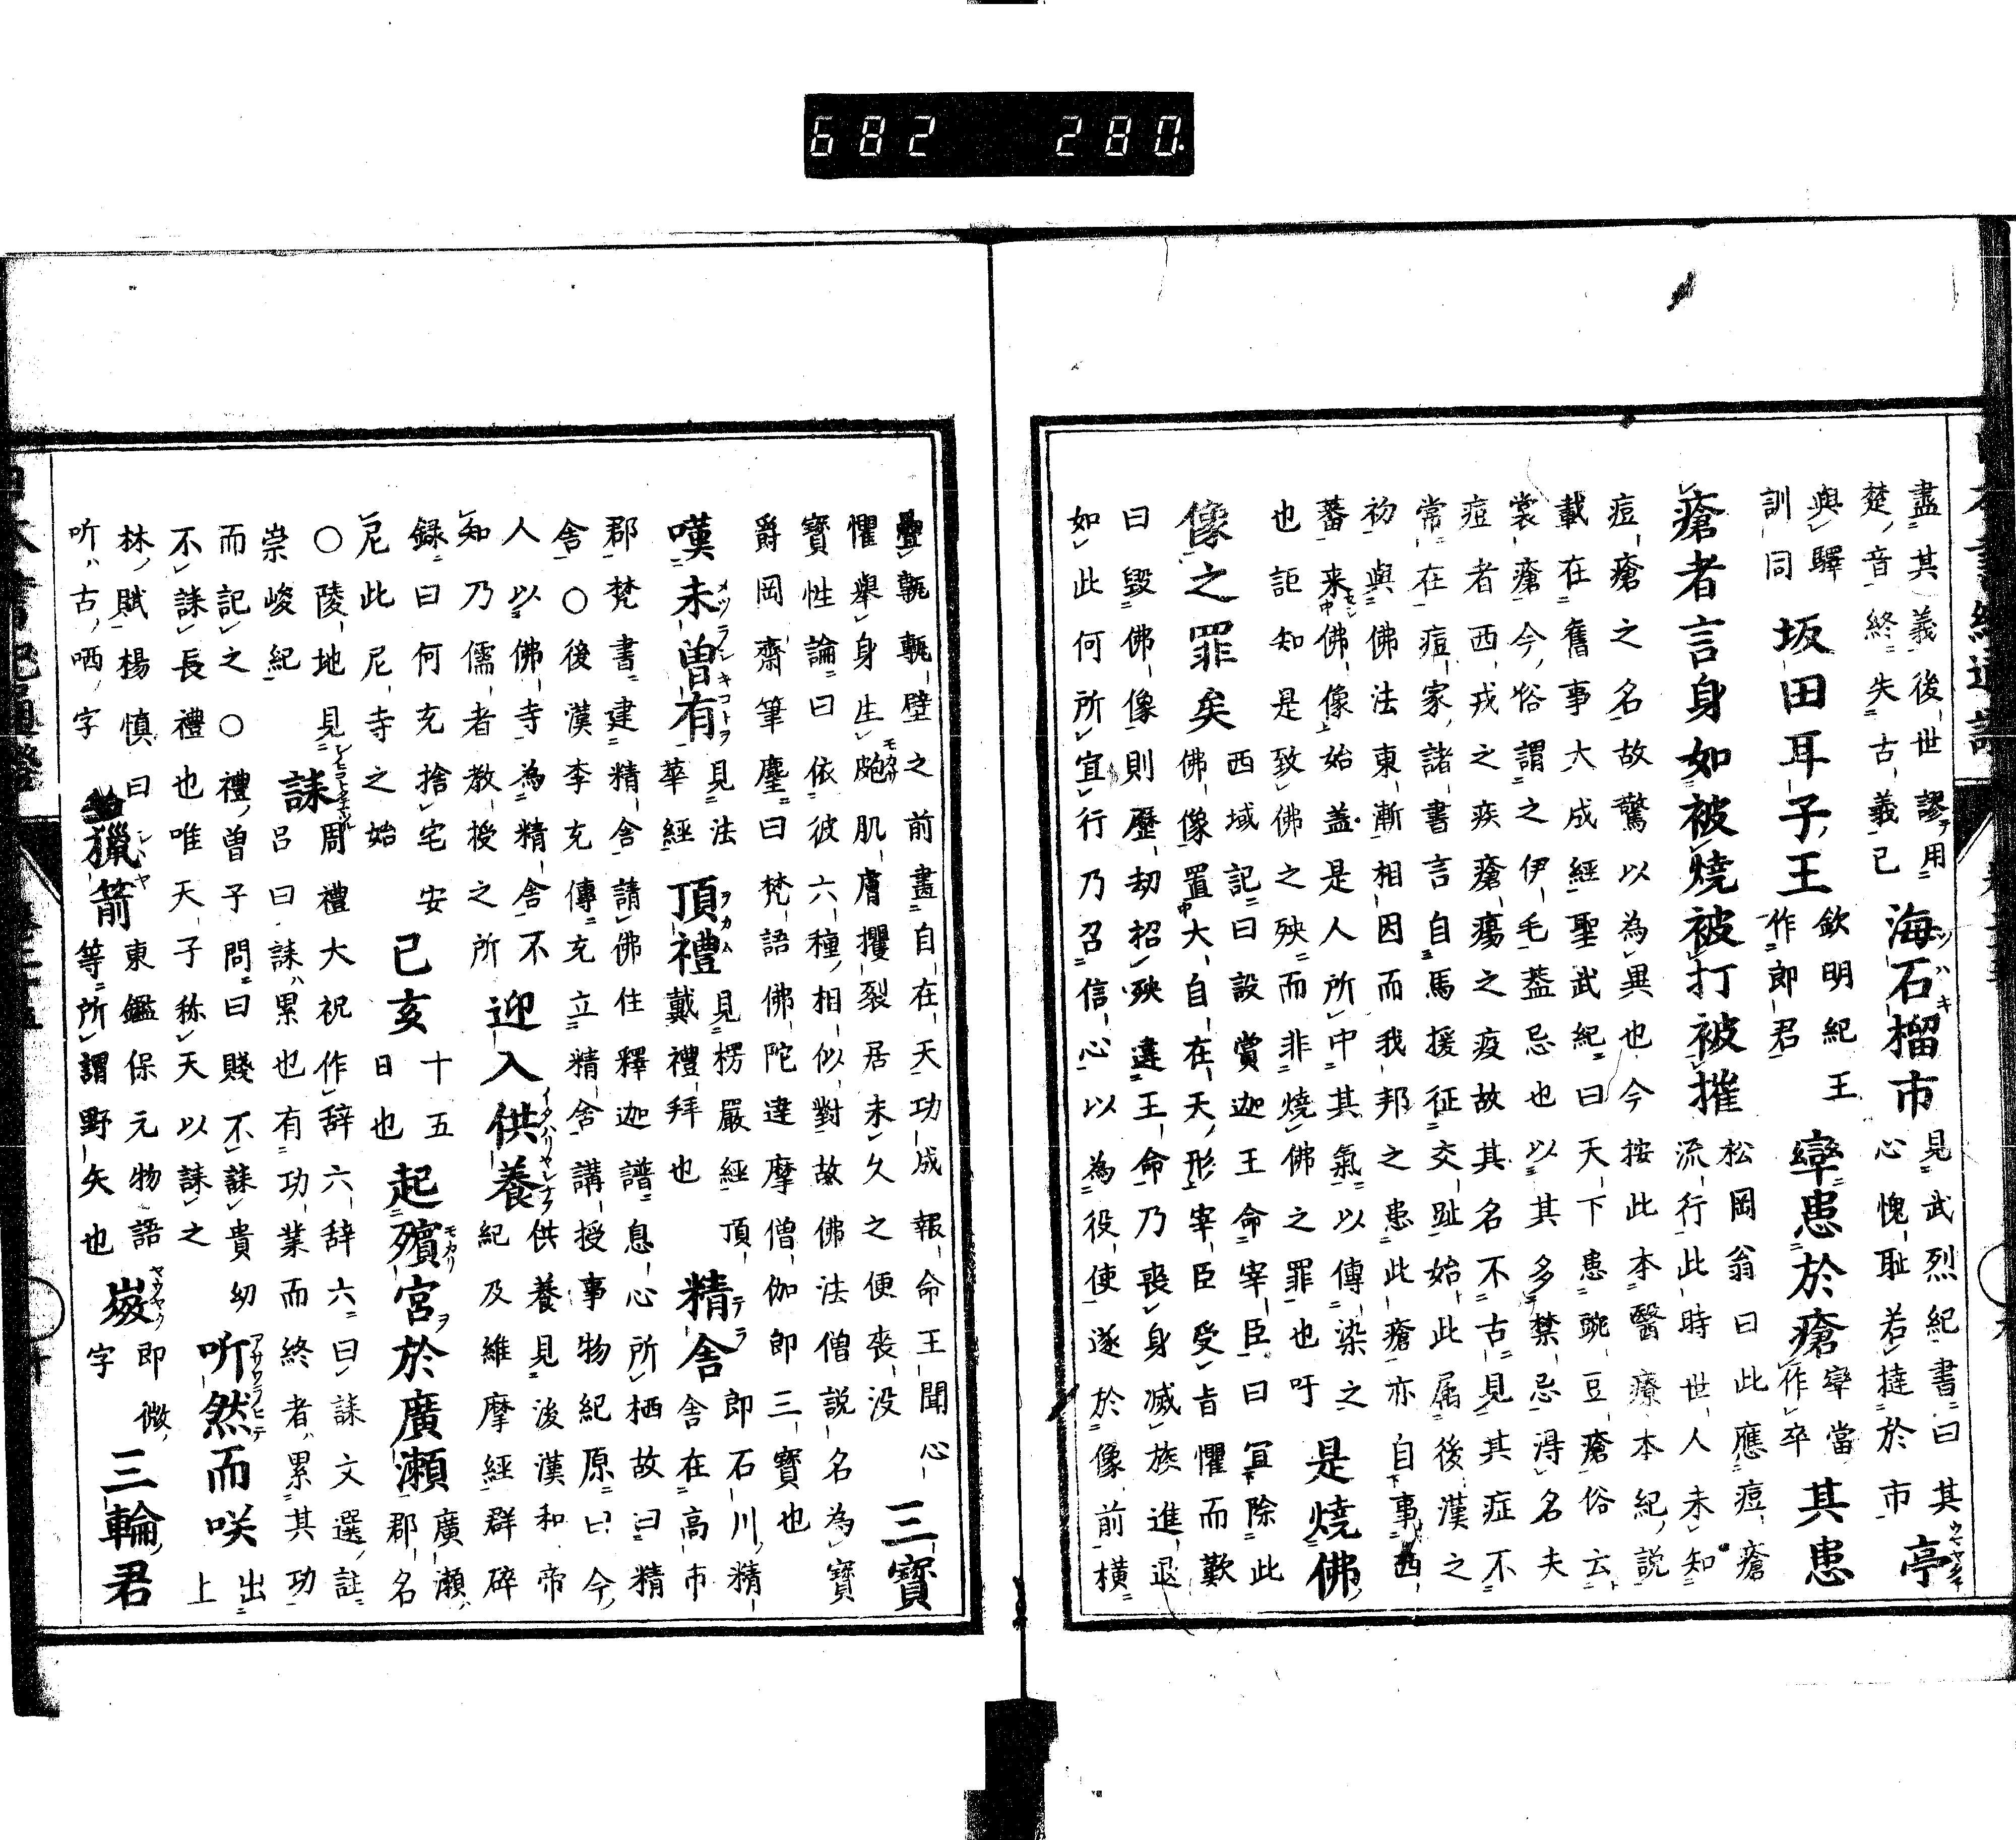 682 280
盡其義後世謬用
楚音終失古義已
海石榴市
見武烈紀書曰其
心愧恥若撻於市
亭
與驛
訓同
坂田耳子王
欽明紀王
作郎君
㝈患於瘡
㝈當
作卒
其患
瘡者言身如被燒被打被摧
松岡翁曰此應痘瘡
流行此時世人未知
痘瘡之名故驚以為異也今按此本醫療本紀說
載在舊事大成經聖武紀曰天下患豌豆瘡俗云
裳瘡今俗謂之伊毛蓋忌也以其多禁忌得名夫
痘者西戎之疾瘡瘍之疫故其名不古見其症不
常在痘家諸書言自馬援征交趾始此属後漢之
初與佛法東漸相因而我邦之患此瘡亦自事西
蕃来佛像始盖是人所中其氣以傳染之
也詎知是致佛之殃而非燒佛之罪也吁
是燒佛
像之罪矣
西域記曰設賞迦王命宰臣曰宜除此
佛像置大自在天形宰臣受旨懼而歎
曰毀佛像則歷劫招殃違王命乃喪身滅族進退
如此何所宜行乃召信心以為役使遂於像前橫
疊甎甎壁之前畫自在天功成報命王聞心
懼舉身生皰肌膚攫裂居未久之便喪没
三寳
寳性論曰依彼六種相似對故佛法僧說名為寳
爵岡齋筆麈曰梵語佛陀達摩僧伽即三寳也
嘆未曾有
見法
華經
頂禮
見楞嚴經頂
戴禮拜也
精舎
即石川精
舎在高市
郡梵書建精舎請佛住釋迦譜息心所栖故曰精
舎○後漢李充傳充立精舎講授事物紀原曰今
人以佛寺為精舎不
知乃儒者教授之所
迎入供養
供養見後漢和帝
紀及維摩經群碎
録曰何充捨宅安
尼此尼寺之始
己亥
十五
日也
起殯宮於廣瀬
廣瀬
郡名
○陵地見
崇峻紀
誄
周禮大祝作辞六辞六曰誄文選註
呂曰誄累也有功業而終者累其功
而記之○禮曾子問曰賤不誄貴幼
不誄長禮也唯天子称天以誄之
听然而咲
出上
林賦楊慎曰
听古哂字
獵箭
東鑑保元物語
等所謂野矢也
嶶
即微
字
三輪君